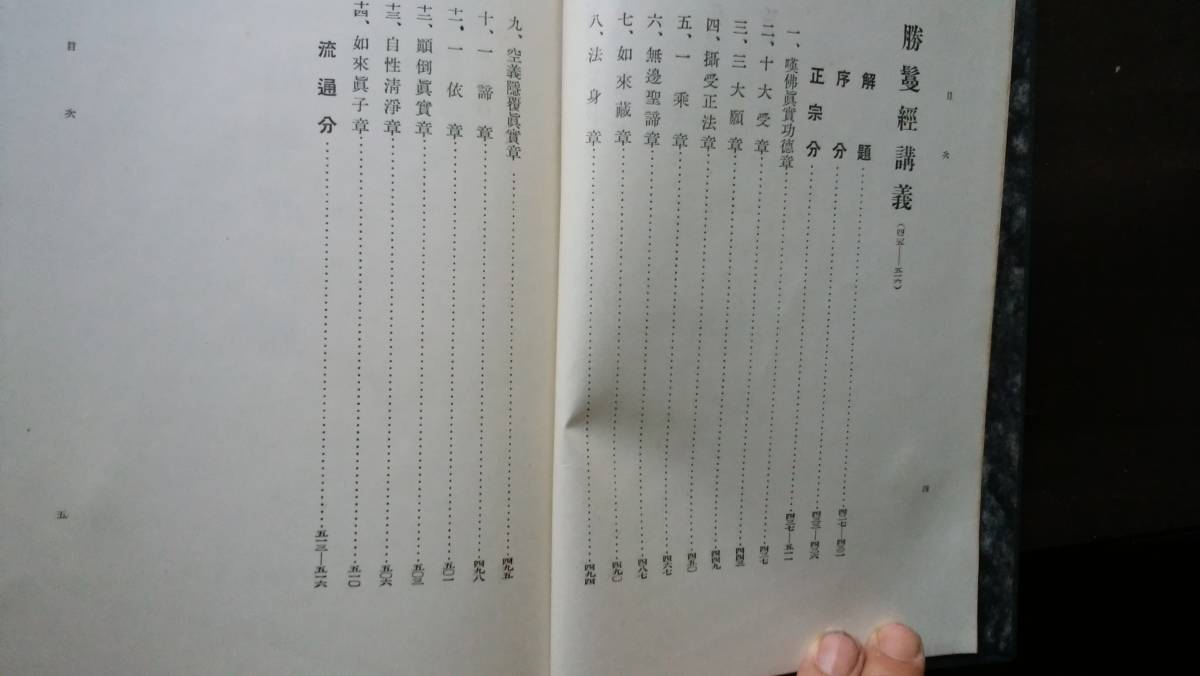 目次
勝鬘經講義(四二五——五一六)
解題……四二七—四三一
序分……四三三—四三六
正宗分……四三七—五一一
一、嘆佛眞實功德章……四三七
二、十大受章……四四三
三、三大願章……四四九
四、攝受正法章……四五〇
五、一乘章……四六七
六、無邊聖諦章……四八七
七、如來藏章……四九〇
八、法身章……四九四
四
九、空義隱覆眞實章……四九五
十、一諦章……四九八
十一、一依章……五〇一
十二、顚倒眞實章……五〇三
十三、自性淸淨章……五〇六
十四、如來眞子章……五一〇
流通分……五一三—五一六
目次
五